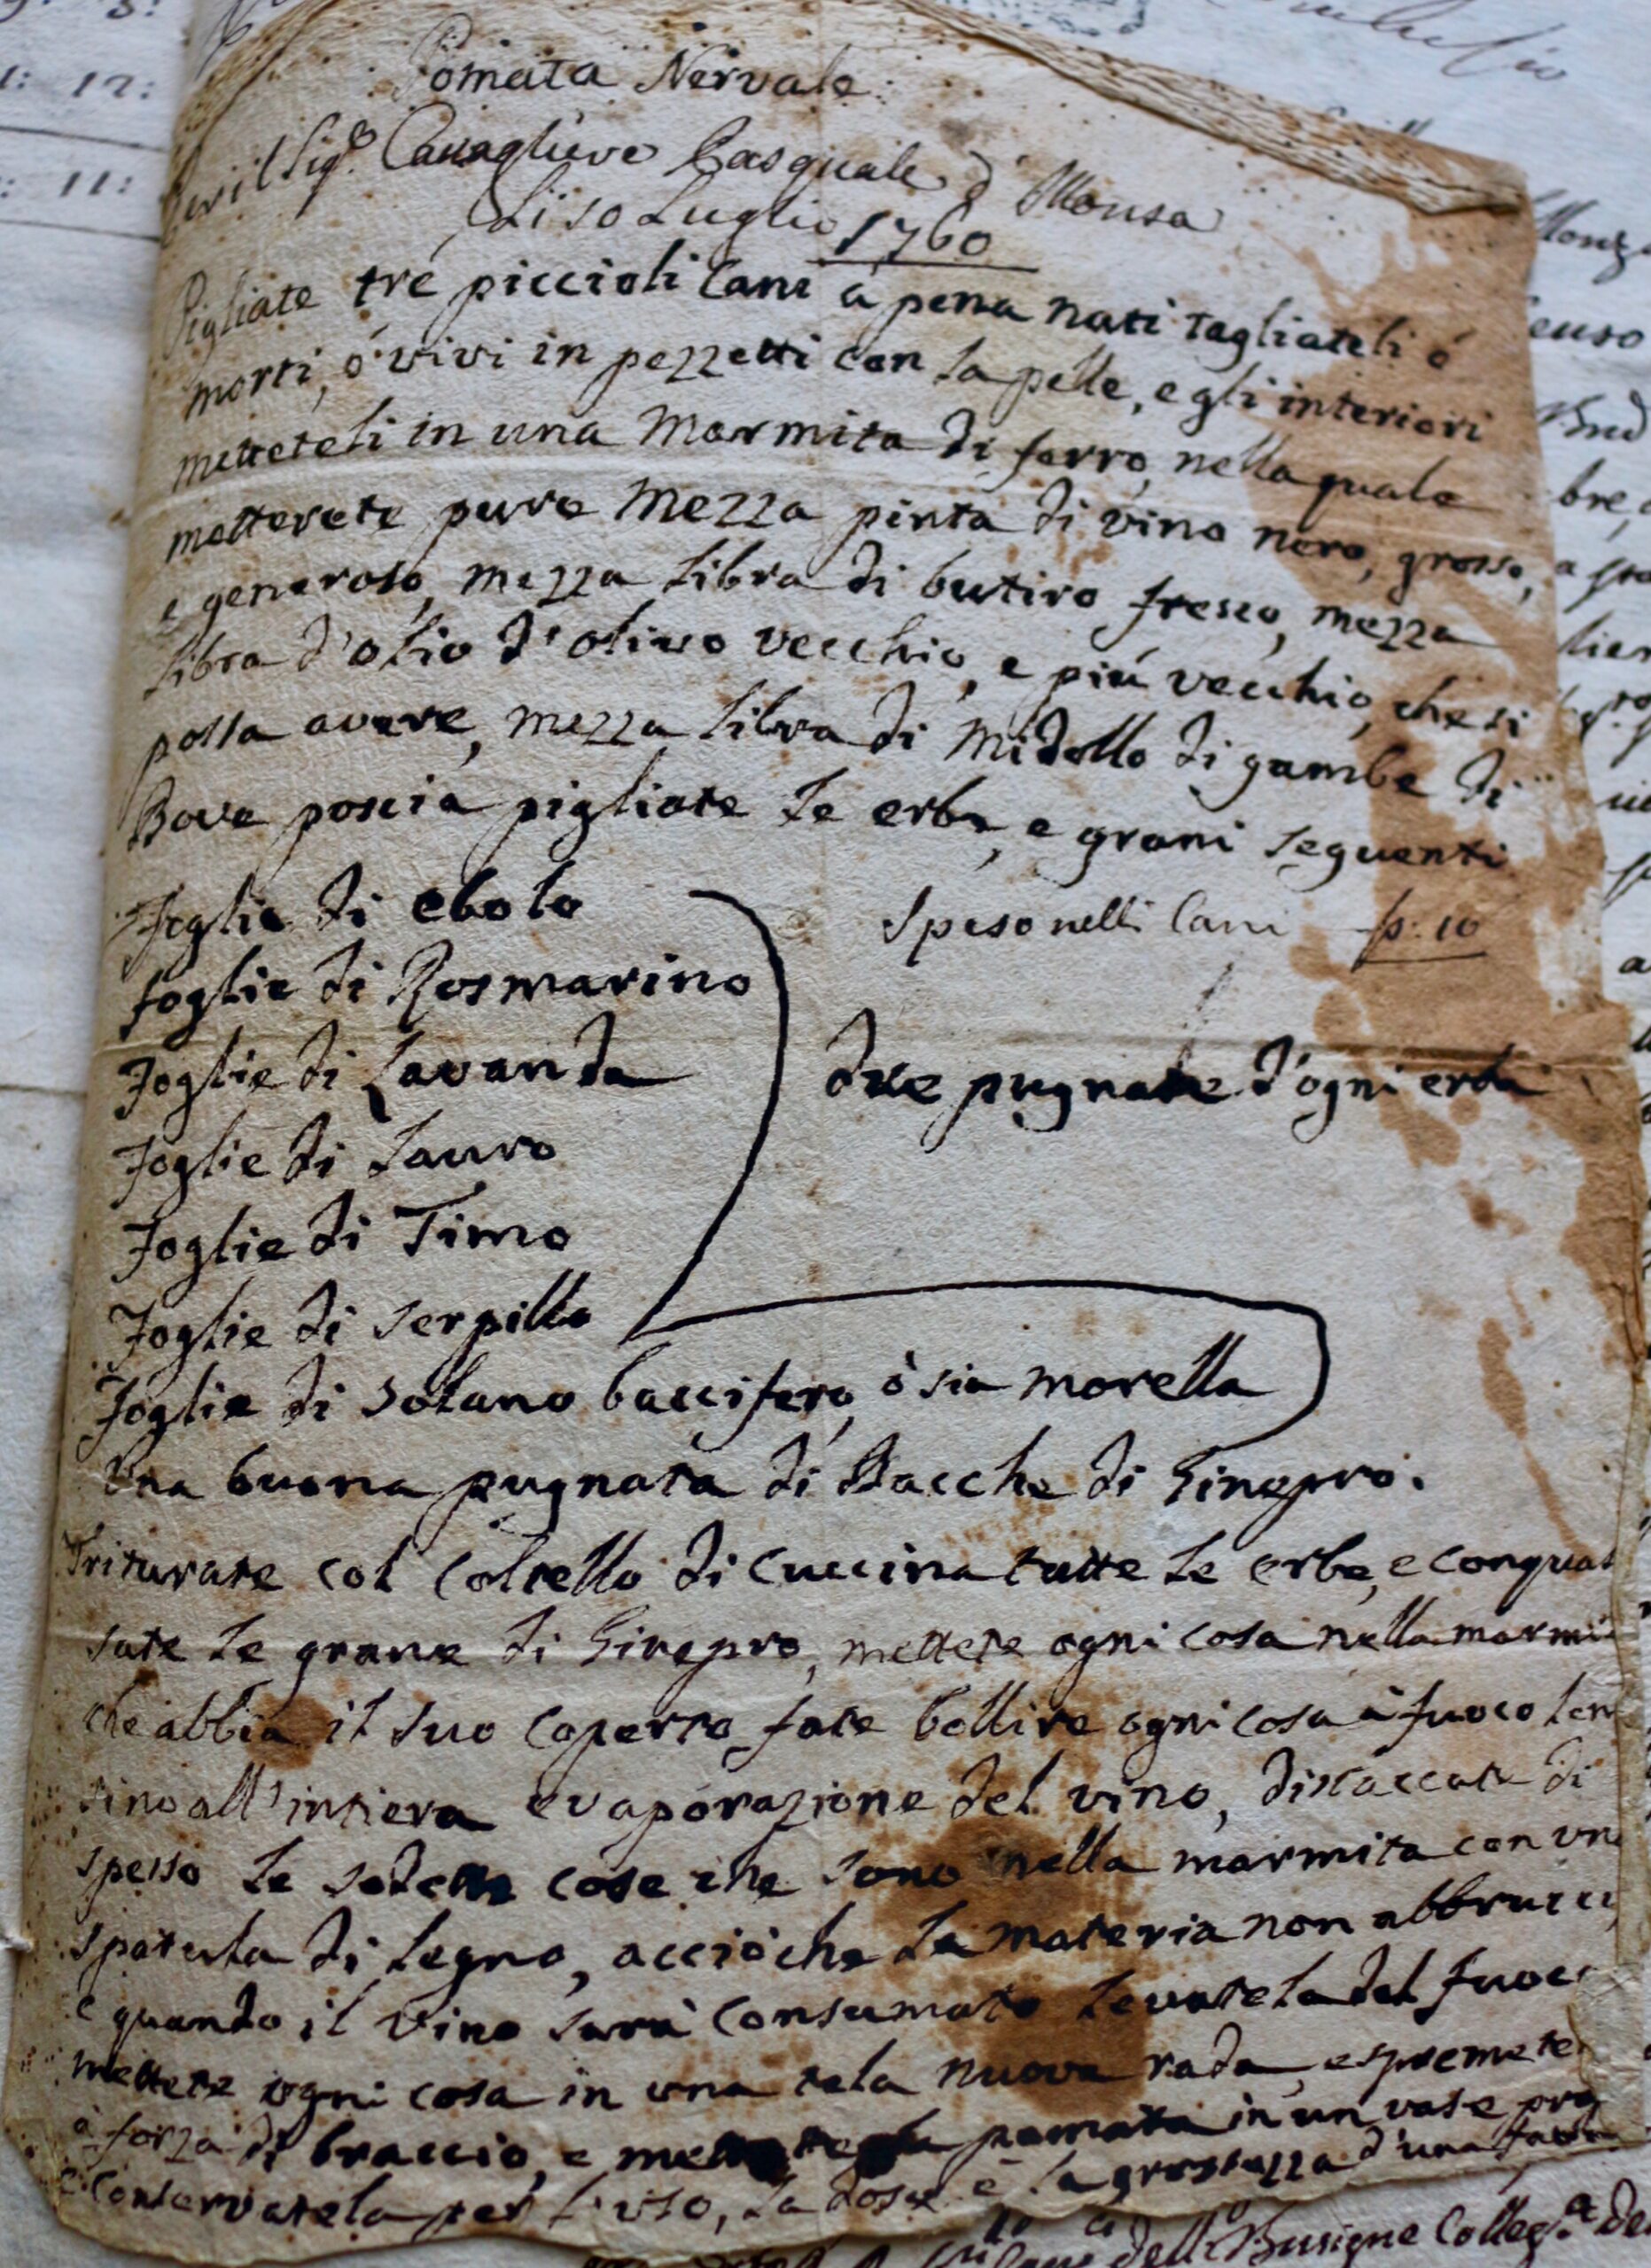 Pomata Nervale
Per il Sig.e Cavagliere Pasquale d'
Li 10 Luglio 1760
Pigliate tré piccioli Cani á pena nati tagliateli ó
morti, ó vivi in pezzetti con la pelle, e gli interiori
metteteli in una Marmita di ferro, nella quale
metterete pure Mezza pinta di vino nero, grosso,
e generoso, mezza libra di butiro fresco, mezza
libra d'olio d'olivo vecchio, e piú vecchio, che si
possa avere, mezza libra di Midollo di gambe di
Bove poscia pigliate le erbe, e grani seguenti
Foglie di ebolo
Speso nelli Cani
foglie di Rosmarino
Foglie di Lavanda
due pugnate d'ogni erba
Foglie di Lauro
Foglie di Timo
Foglie di Serpillo
Foglie di Solano baccifero, ò sia morella
Una buona pugnata di Bacche di Ginepro.
Triturate col Coltello di Cuccina tutte le erbe, e conquas
sate le grane di Ginepro, mettete ogni cosa nella marmi
che abbia il suo Coperto, fate bollire ogni cosa á fuoco len
sino all'intiera evaporazione del vino, distaccate di
spesso le sodette cose che sono nella marmita con un
spatula di legno, acciòche la materia non abbrucci,
e quando il Vino sarà Consumato levatela dal fuoco
mettete ogni cosa in una tela nuova rada, espremete
à forza di braccio, e pomata in un vase prop
e Conservatela per l'uso, la dose è la grossezza d'una fava